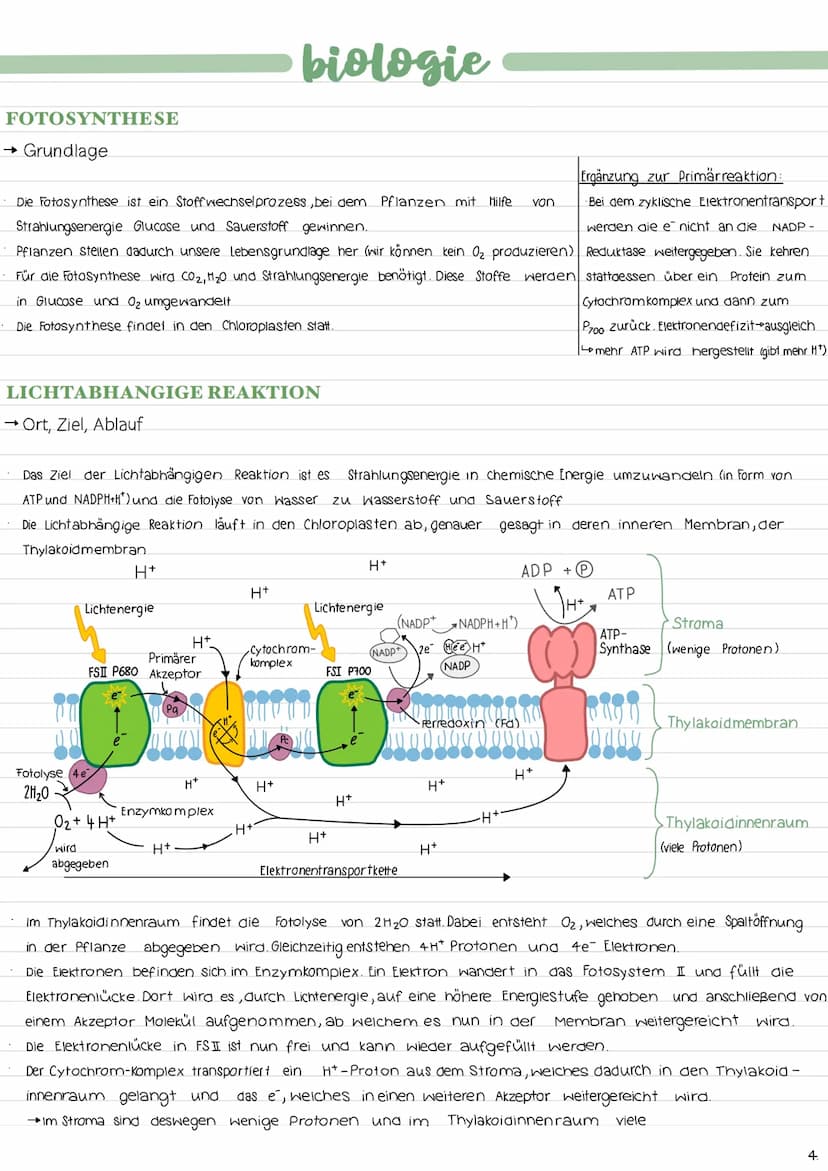 biologie
FOTOSYNTHESE
→ Grundlage
· Die Fotosynthese ist ein Stoffwechselprozess, bei dem Pflanzen mit Hilfe von
Strahlungsenergie Glucose und Sauerstoff gewinnen.
· Pflanzen stellen dadurch unsere Lebensgrundlage her (wir können kein O₂ produzieren)
· Für die Fotosynthese wird CO₂, H₂O und Strahlungsenergie benötigt. Diese Stoffe werden
in Glucose und O₂ umgewandelt
· Die Fotosynthese findet in den Chloroplasten statt.
Ergänzung zur Primärreaktion:
· Bei dem zyklische Elektronentransport
werden die e⁻ nicht an die NADP-
Reduktase weitergegeben. Sie kehren
stattdessen über ein Protein zum
Cytochromkomplex und dann zum
P₇₀₀ zurück. Elektronendefizit→ausgleich
↳ mehr ATP wird hergestellt (gibt mehr H⁺)
LICHTABHANGIGE REAKTION
→ Ort, Ziel, Ablauf
· Das Ziel der Lichtabhängigen Reaktion ist es Strahlungsenergie in chemische Energie umzuwandeln (in Form von
ATP und NADPH+H⁺) und die Fotolyse von Wasser zu Wasserstoff und Sauerstoff
· Die Lichtabhängige Reaktion läuft in den Chloroplasten ab, genauer gesagt in deren inneren Membran, der
Thylakoidmembran
H⁺
H⁺
H⁺
ADP + P
H⁺
ATP
Lichtenergie
Lichtenergie
(NADP⁺ → NADPH+H⁺)
Stroma
H⁺
Cytochrom-
komplex
NADP⁺
2e⁻
H e⁻ e⁻ H⁺
NADP
ATP-
Synthase
(wenige Protonen)
Primärer
Akzeptor
FSII P680
FSI P700
e⁻
Pq
H⁺
e⁻
Ferredoxin (Fd)
Thylakoidmembran
e⁻
Pc
e⁻
Fotolyse
4e⁻
2H₂O
H⁺
H⁺
H⁺
H⁺
H⁺
Enzymkomplex
O₂ + 4H⁺
H⁺
H⁺
H⁺
Thylakoidinnenraum
wird
abgegeben
H⁺
H⁺
(viele Protonen)
Elektronentransportkette
· Im Thylakoidinnenraum findet die Fotolyse von 2H₂O statt. Dabei entsteht O₂, welches durch eine Spaltöffnung
in der Pflanze abgegeben wird. Gleichzeitig entstehen 4H⁺ Protonen und 4e⁻ Elektronen.
· Die Elektronen befinden sich im Enzymkomplex. Ein Elektron wandert in das Fotosystem II und füllt die
Elektronenlücke. Dort wird es, durch Lichtenergie, auf eine höhere Energiestufe gehoben und anschließend von
einem Akzeptor Molekül aufgenommen, ab welchem es nun in der Membran weitergereicht wird.
· Die Elektronenlücke in FSII ist nun frei und kann wieder aufgefüllt werden.
· Der Cytochrom-Komplex transportiert ein H⁺-Proton aus dem Stroma, welches dadurch in den Thylakoid-
innenraum gelangt und das e⁻, welches in einen weiteren Akzeptor weitergereicht wird.
→ Im Stroma sind deswegen wenige Protonen und im Thylakoidinnenraum viele
4.